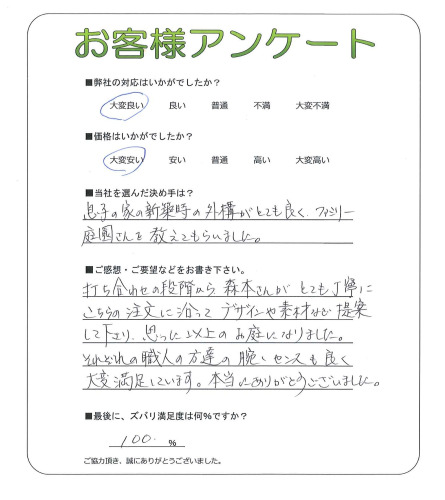 お客様アンケート
■弊社の対応はいかがでしたか？
大変良い 良い 普通 不満 大変不満
■価格はいかがでしたか？
大変安い 安い 普通 高い 大変高い
■当社を選んだ決め手は？
息子の家の新築時の外構がとても良く、ファミリー
庭園さんを教えてもらいました。
■ご感想・ご要望などをお書き下さい。
打ち合わせの段階から森本さんがとても丁寧に
こちらの注文に沿ってデザインや素材など提案
して下さり、思った以上のお庭になりました。
それぞれの職人の方達の腕、センスも良く
大変満足しています。本当にありがとうございました。
■最後に、ズバリ満足度は何%ですか？
100. %
ご協力頂き、誠にありがとうございました。